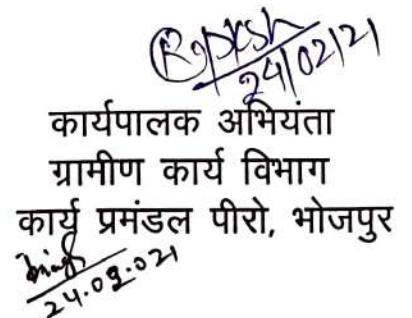 24/02/21
कार्यपालक अभियंता
ग्रामीण कार्य विभाग
कार्य प्रमंडल पीरो, भोजपुर
24.02.021